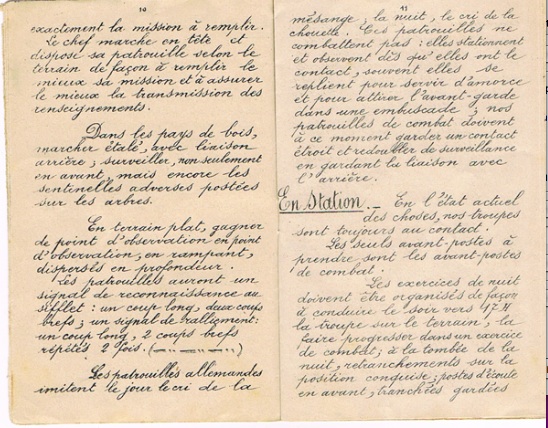 10
exactement la mission à remplir.
Le chef marche en tête et
dispose sa patrouille selon le
terrain de façon à remplir le
mieux sa mission et à assurer
le mieux la transmission des
renseignements.
Dans les pays de bois,
marcher étalé, avec liaison
arrière ; surveiller, non seulement
en avant, mais encore les
sentinelles adverses postées
sur les arbres.
En terrain plat, gagner
de point d'observation en point
d'observation, en rampant,
dispersés en profondeur.
Les patrouilles auront un
signal de reconnaissance au
sifflet : un coup long, deux coups
brefs ; un signal de ralliement :
un coup long, 2 coups brefs
répétés 2 fois.
Les patrouilles allemandes
imitent le jour le cri de la
11
mésange, la nuit, le cri de la
chouette. Ces patrouilles ne
combattent pas : elles stationnent
et observent dès qu'elles ont le
contact, souvent elles se
replient pour servir d'amorce
et pour attirer l'avant-garde
dans une embuscade ; nos
patrouilles de combat doivent
à ce moment garder un contact
étroit et redoubler de surveillance
en gardant la liaison avec
l'arrière.
En Station. — En l'état actuel
des choses, nos troupes
sont toujours au contact.
Les seuls avant-postes à
prendre sont les avant-postes
de combat.
Les exercices de nuit
doivent être organisés de façon
à conduire le soir vers 17 H
la troupe sur le terrain, la
faire progresser dans un exercice
de combat ; à la tombée de la
nuit, retranchements sur la
position conquise ; postes d'écoute
en avant, tranchées gardées